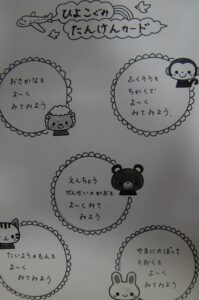 ひよこぐみ
たんけんカード
おさかなを
よ〜く
みてみよう
ふくろうを
ちかくで
よ〜く
みてみよう。
えんちょう
せんせいのかおを
よ〜くみて
みよう
たいようのもんを
よ〜く
みてみよう
やまにのぼって
とおくを
よ〜く
みてみよう